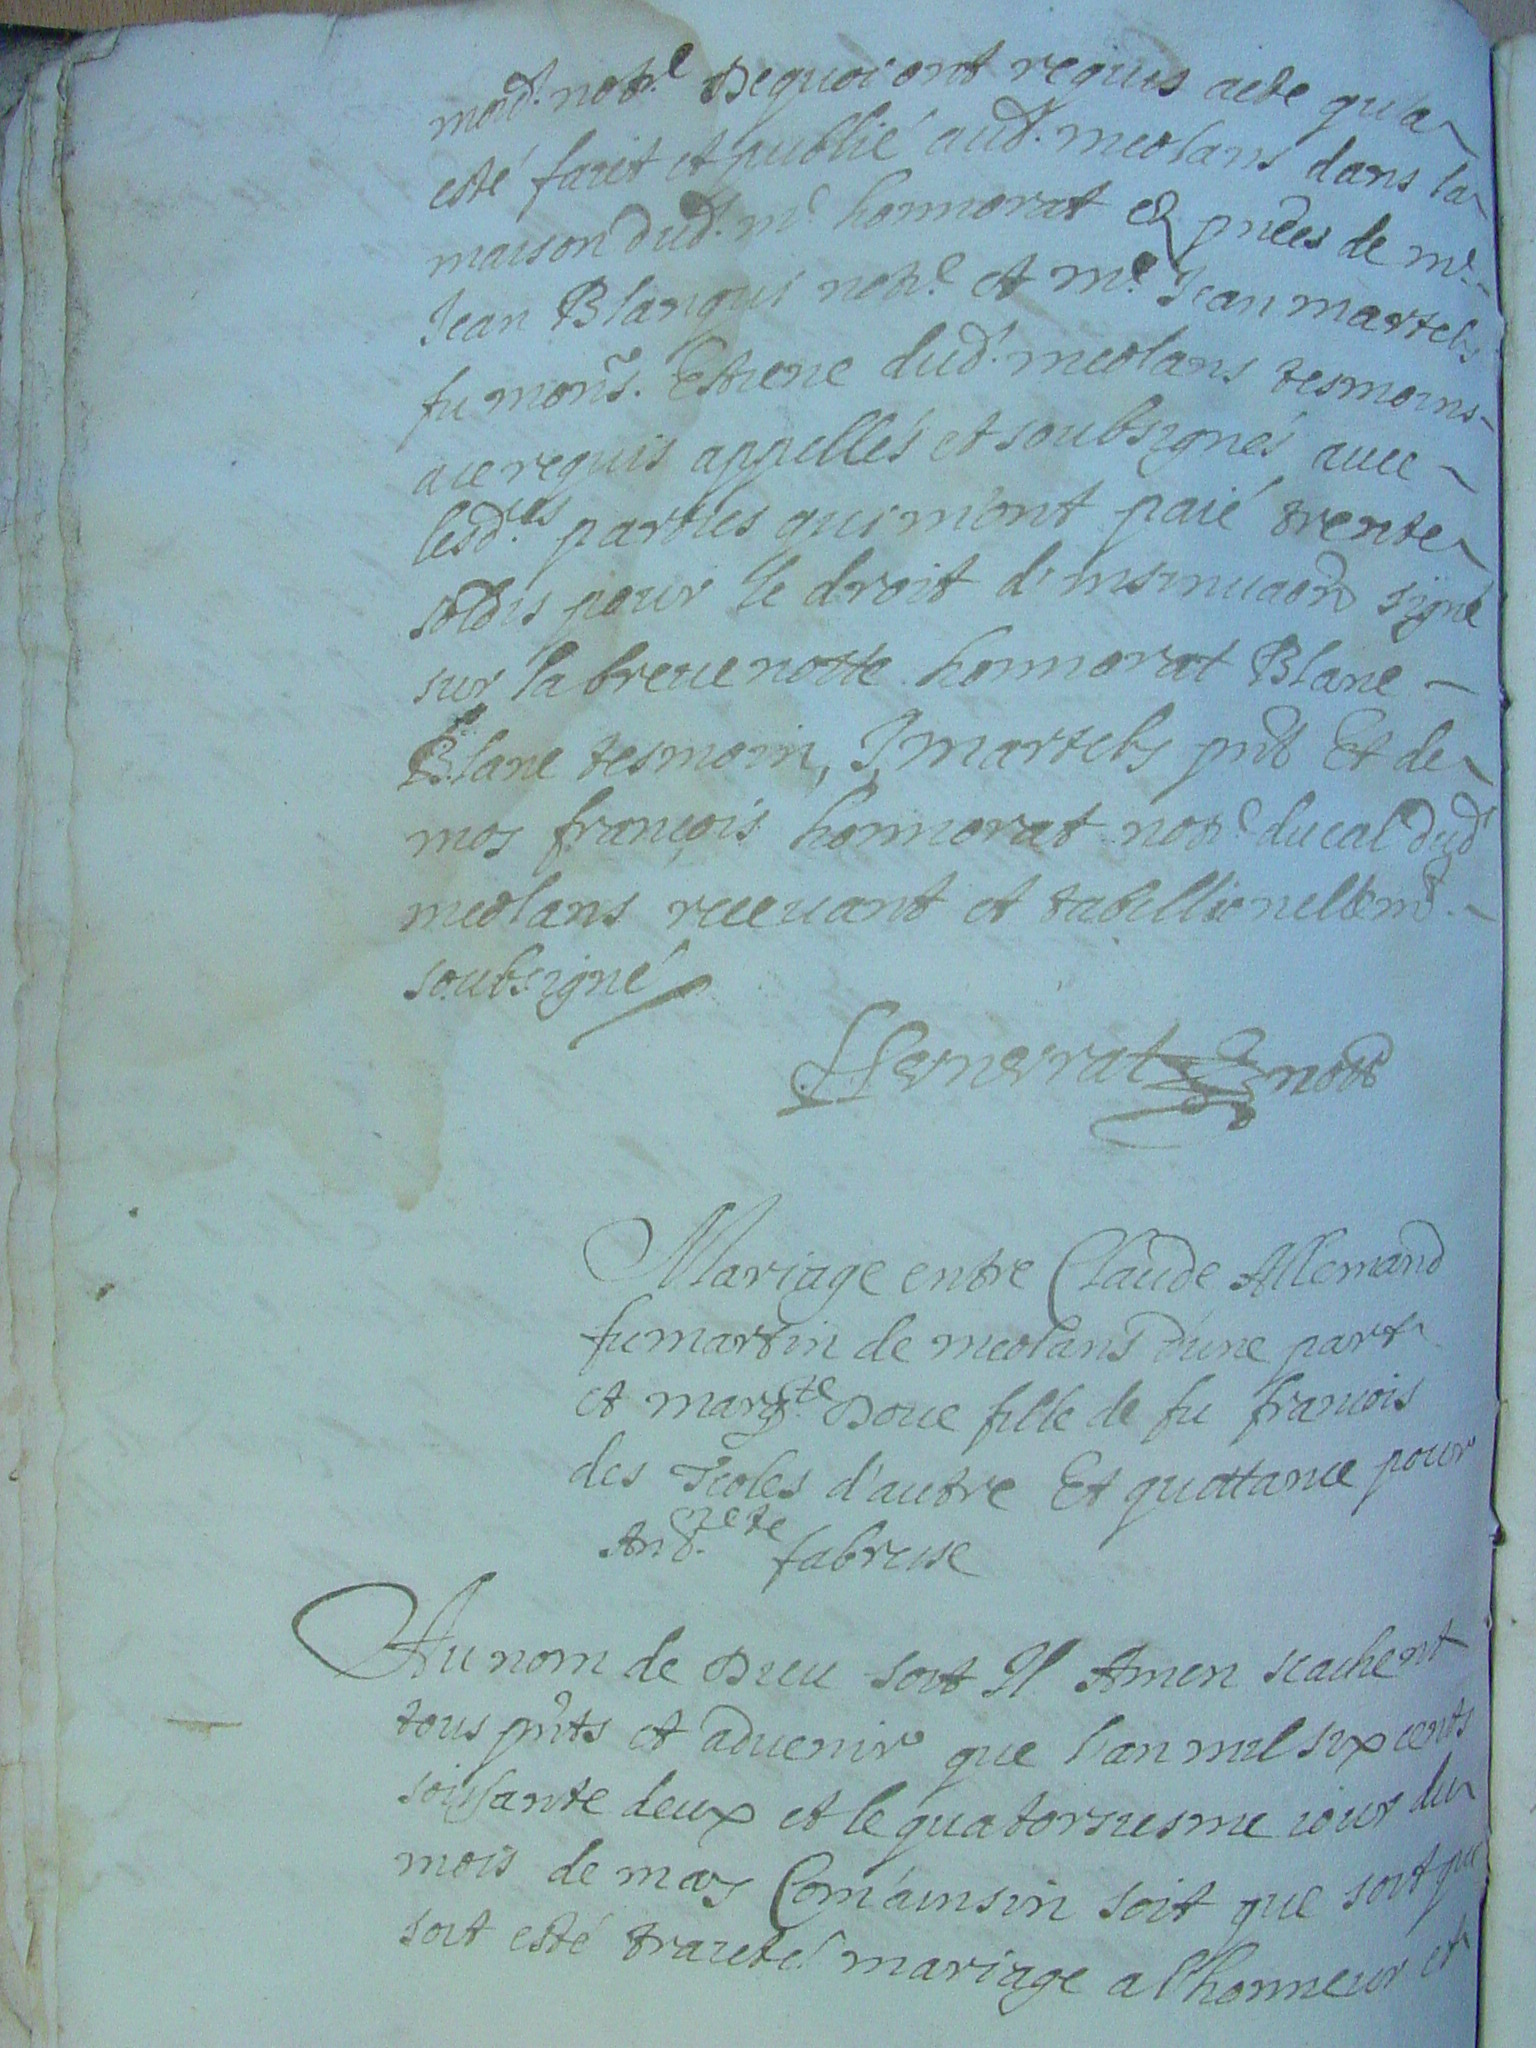 moid. not.e De quoi ont requis acte qu'a
esté fait et publié aud. meolans dans la
maison dud. m.e honnorat pnces de m.e
Jean Blanqui not.e et m.e Jean martels
fu mons. Estiene dud. meolans tesmoins
a ce requis appellés et soubsignés avec
lesd.es parties qui m'ont paié trente
soldis pour le droit d'insinuaon signé
sur la breve notte honnorat Blanc
Blanc tesmoin, J martels pnt Et de
moy françois honnorat not.e ducal dud
meolans recevant et tabellionellemt.
soubsigné
not
Mariage entre Claude Allemand
fu martin de meolans d'une part
et marg.te Doue fille de fu francois
des d'autre Et quottance pour
fabreise
Au nom de Dieu soit Il Amen scachent
tous pnts et advenir que l'an mil six cents
soissante deux et le quatorsiesme iour du
mois de may Com'ainsin soit que soit
soit esté traicté mariage a l'honneur et